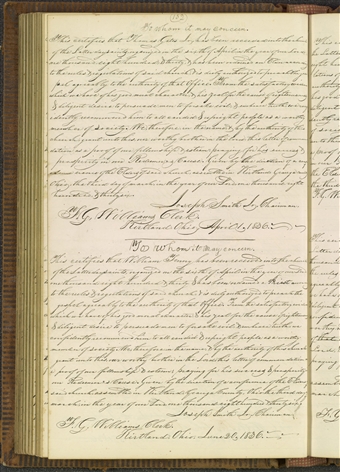 182
To whom it may concern
This certifies that has been received into the church
of the Latter day saints organized on the sixth of April in the year of our Lord
one thousand eight hundred & thirty & has been ordained an Elder according
to the rules & regulations of said church & is duly authorized to preach the gos-
pel agreeably to the authority of that office From the satisfactory evidence
which we have of his good moral character & his zeal for the cause of righteousness
& diligent desire to persuade men to forsake evil & embrace truth we con-
fidently recommend him to all candid & upright people as a worthy
member of society. We therefore in the name & by the authority of this
church grant unto this our worthy brother in the Lord this letter of commen-
dation as a proof of our fellowship & esteem praying for his success &
prosperity in our Redeemer's Cause Given by the direction of a con-
ference of the Elders of said church assembled in Kirtland Geauga County
Ohio, the third day of March in the year of our Lord one thousand eight
hundred & thirty six.
Joseph Smith Jr, Chairman
F. G. Williams, Clerk
Kirtland, Ohio, April 1, 1836.
To whom it may concern.
This certifies that William has been received into the church
of the Latter day saints organized on the sixth of April in the year of our Lord
one thousand eight hundred & thirty & has been ordained
to the rules & regulations of said church & is duly authorized to preach the
gospel agreeably to the authority of that office. From the satisfactory evidence
which we have of his good moral character & his zeal for the cause of righteousness
& diligent desire to persuade men to forsake evil & embrace truth we
confidently recommend him to all candid & upright people as a worthy
member of society. We therefore in the name & by the authority of this church
grant unto this our worthy brother in the Lord this letter of commendation as a
proof of our fellowship & esteem praying for his success & prosperity
in our Redeemer's Cause. Given by the direction of a conference of the Elders
of said church assembled in Kirtland Geauga County Ohio the third
day of March in the year of our Lord one thousand eight hundred thirty six
Joseph Smith Jr, Chairman
F. G. Williams, Clerk
Kirtland, Ohio, June 1836.